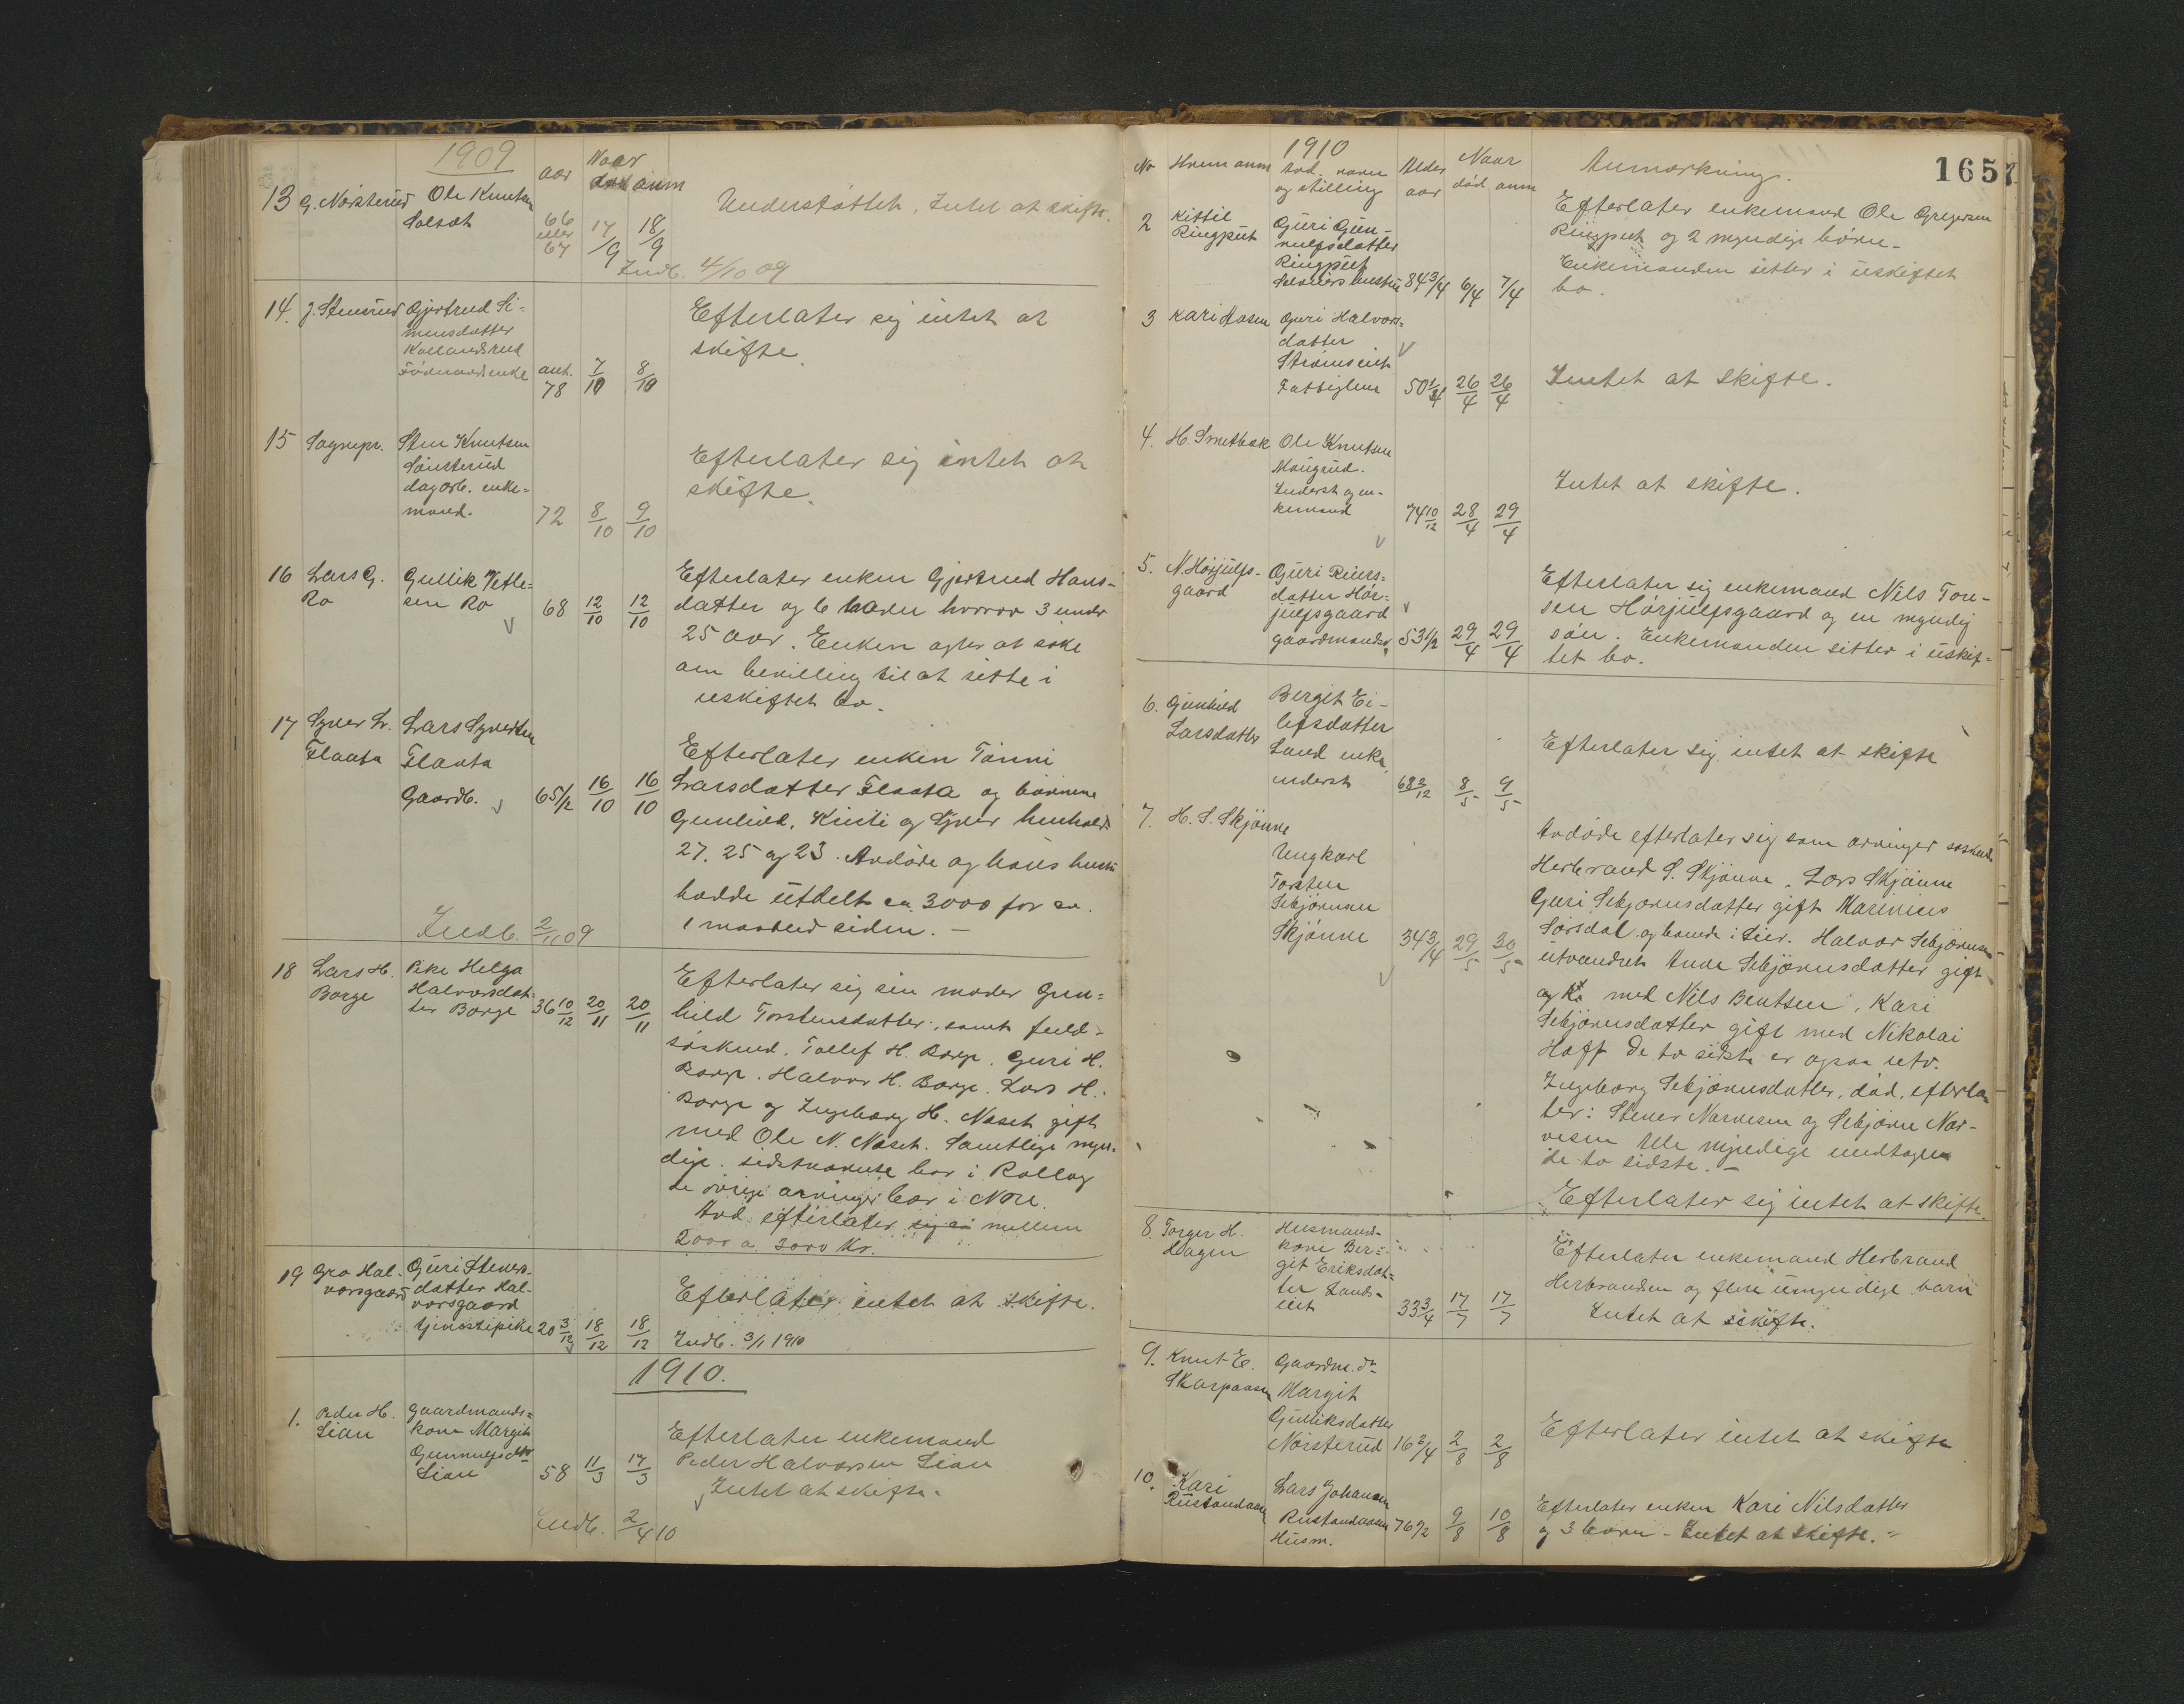 1909
aar
Naar
død anm
13 G. Nørsterud Ole Knutsen
Solsæt
66
eller
67
17/9
18/9
Understøttet. Intet at skifte.
Indb. 4/10 09
14. J. Stenerud Gjertrud Si=
monsdatter
Føderaadsenke
ant.
78
7/10
8/10
Efterlater sig intet at
skifte.
15 Sognepr. Sten Knutsen
Sønsterud
dagarb. enke=
mand.
72
8/10
9/10
Efterlater sig intet at
skifte.
16 Lars G. Gullik Tetle=
Ro sen Ro
68
12/10
12/10
Efterlater enken Gjertrud Hans-
datter og 6 barn hvorav 3 under
25 aar. Enken agter at søke
om bevilling til at sitte i
uskiftet bo.
17 Syver L. Lars Syversen
Flaata Flaata
Gaardb.
65 1/2
16/10
16/10
Efterlater enken Tønni
Larsdatter Flaata og børnene
Gunhild, Kristi og Syver henholds
27. 25 og 23. Avdøde og hans hustru
hadde utdelt ca. 3000 for ca.
1 maaned siden. —
Indb. 2/11 09
18 Lars H. Pike Helga
Borge Halvorsdat=
ter Borge
36 10/12
20/11
20/11
Efterlater sig sin moder Gun=
hild Torstensdatter, samt fuld=
søskend. Tollef H. Borge. Guri H.
Borge. Halvor H. Borge. Lars H.
Borge og Ingeborg H. Næset gift
med Ole N. Næset. Samtlige myn-
dige. sidstnævnte bor i Rollag
de øvrige arvinger bor i Nore.
Avd. efterlater sig ca mellem
2000 a 3000 Kr.
19 Gro Hal- Guri Steners-
vorsgaard datter Hal-
vorsgaard
tjenestepike
20 3/12
18/12
18/12
Efterlater intet at skifte.
Indb. 3/1 1910
1910.
1. Peder H. Gaardmands=
Lian kone Margit
Gunnulfsdtr
Lian
58
11/3
17/3
Efterlater enkemand
Peder Halvorsen Lian
Intet at skifte.
Indb. 2/4 10
1657
1910
No Hvem anm
Avd. navn
og stilling
Alder
aar
Naar
død anm
Anmærkning.
2 Kittil Guri Gun-
Ringput nulfsdatter
Ringput
hustru
84 3/4
6/4
7/4
Efterlater enkemand Ole Gregersen
Ringput og 2 myndige børn.
Enkemanden sitter i uskiftet
bo.
3 Kari Aasen Guri Halvors=
datter
Strømseiet
Fattiglem
50 1/4
26/4
26/4
Intet at skifte.
4. H. Smetbak Ole Knutsen
Maugrud.
Inderst og en-
kemand
74 10/12
28/4
29/4
Intet at skifte.
5. N. Hørjulfs- Guri Reiers=
gaard datter Hør=
julfsgaard
gaardmandsk.
53 1/2
29/4
29/4
Efterlater sig enkemand Nils Tore-
sen Hørjulfsgaard og en myndig
søn. Enkemanden sitter i uskif=
tet bo.
6. Gunhild Bergit Ei-
Larsdatter lefsdatter
Land enke,
inderst
68 2/12
8/5
9/5
Efterlater sig intet at skifte
7. H. S. Skjønne
Ungkarl
Torsten
Sebjørnsen
Skjønne
34 3/4
29/5
30/5
Avdøde efterlater sig som arvinger søskende
Herbrand S. Skjønne. Lars Skjønne
Guri Sebjørnsdatter gift Marinius
Sørsdal og boende i Lier. Halvor Sebjørnsen
utvandret Anne Sebjørnsdatter gift
med Nils Bentsen, Kari
Sebjørnsdatter gift med Nikolai
Hoff. De to sidste er ogsaa utv.
Ingeborg Sebjørnsdatter, død, efterla-
ter: Stener Narvesen og Sebjørn Nar-
vesen Alle myndige undtagen
de to sidste. —
Efterlater sig intet at skifte.
8. Torger H. Husmands-
Dagen kone Ber=
git Eriksdat=
ter Lands-
eiet
33 3/4
17/7
17/7
Efterlater enkemand Herbrand
Herbrandsen og flere umyndige barn
Intet at skifte.
9. Knut E. Gaardm. dtr
Skarpaasen Margit
Gulliksdatter
Nørsterud
16 3/4
2/8
2/8
Efterlater intet at skifte
10. Kari Lars Johansen
Rustandaasen
Rustandaasen
Husm.
76 1/2
9/8
10/8
Efterlater enken Kari Nilsdatter
og 3 børn - Intet at skifte. -